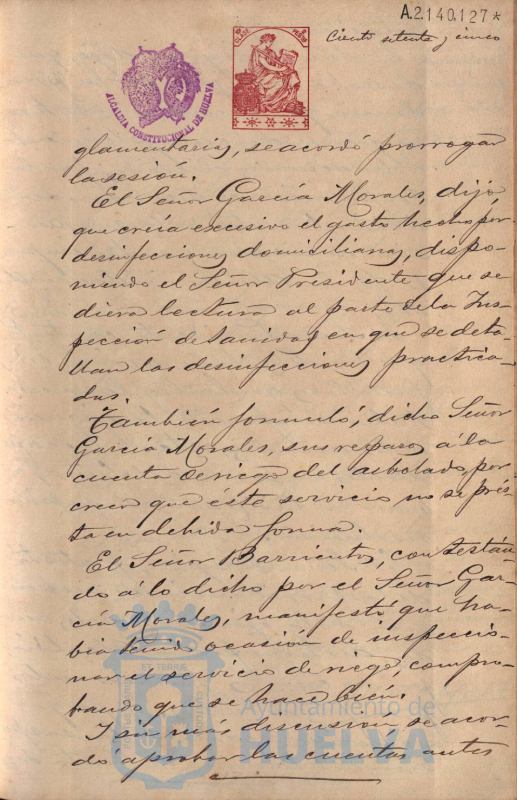 A.2.140.127*
Ciento setenta y cinco
ALCALDIA CONSTITUCIONAL DE HUELVA
glamentarias, se acordó prorrogar
la sesión.
El Señor García Morales, dijo,
que creía excesivo el gasto hecho por
desinfecciones domiciliarias, dispo-
niendo el Señor Presidente que se
diera lectura al parte de la Ins-
pección de Sanidad en que se deta-
llan las desinfecciones practica-
das.
También formuló, dicho Señor
García Morales, sus reparos, á la
cuenta de riego del arbolado, por
creer que éste servicio no se pres-
ta en debida forma.
El Señor Barrientos, contestan-
do á lo dicho por el Señor Gar-
cía Morales, manifestó que ha-
bia tenido ocasión de inspeccio-
nar el servicio de riego, compro-
bando que se hace bien.
Y sin más discusión, se acor-
dó aprobar las cuentas antes
Ayuntamiento de
HUELVA